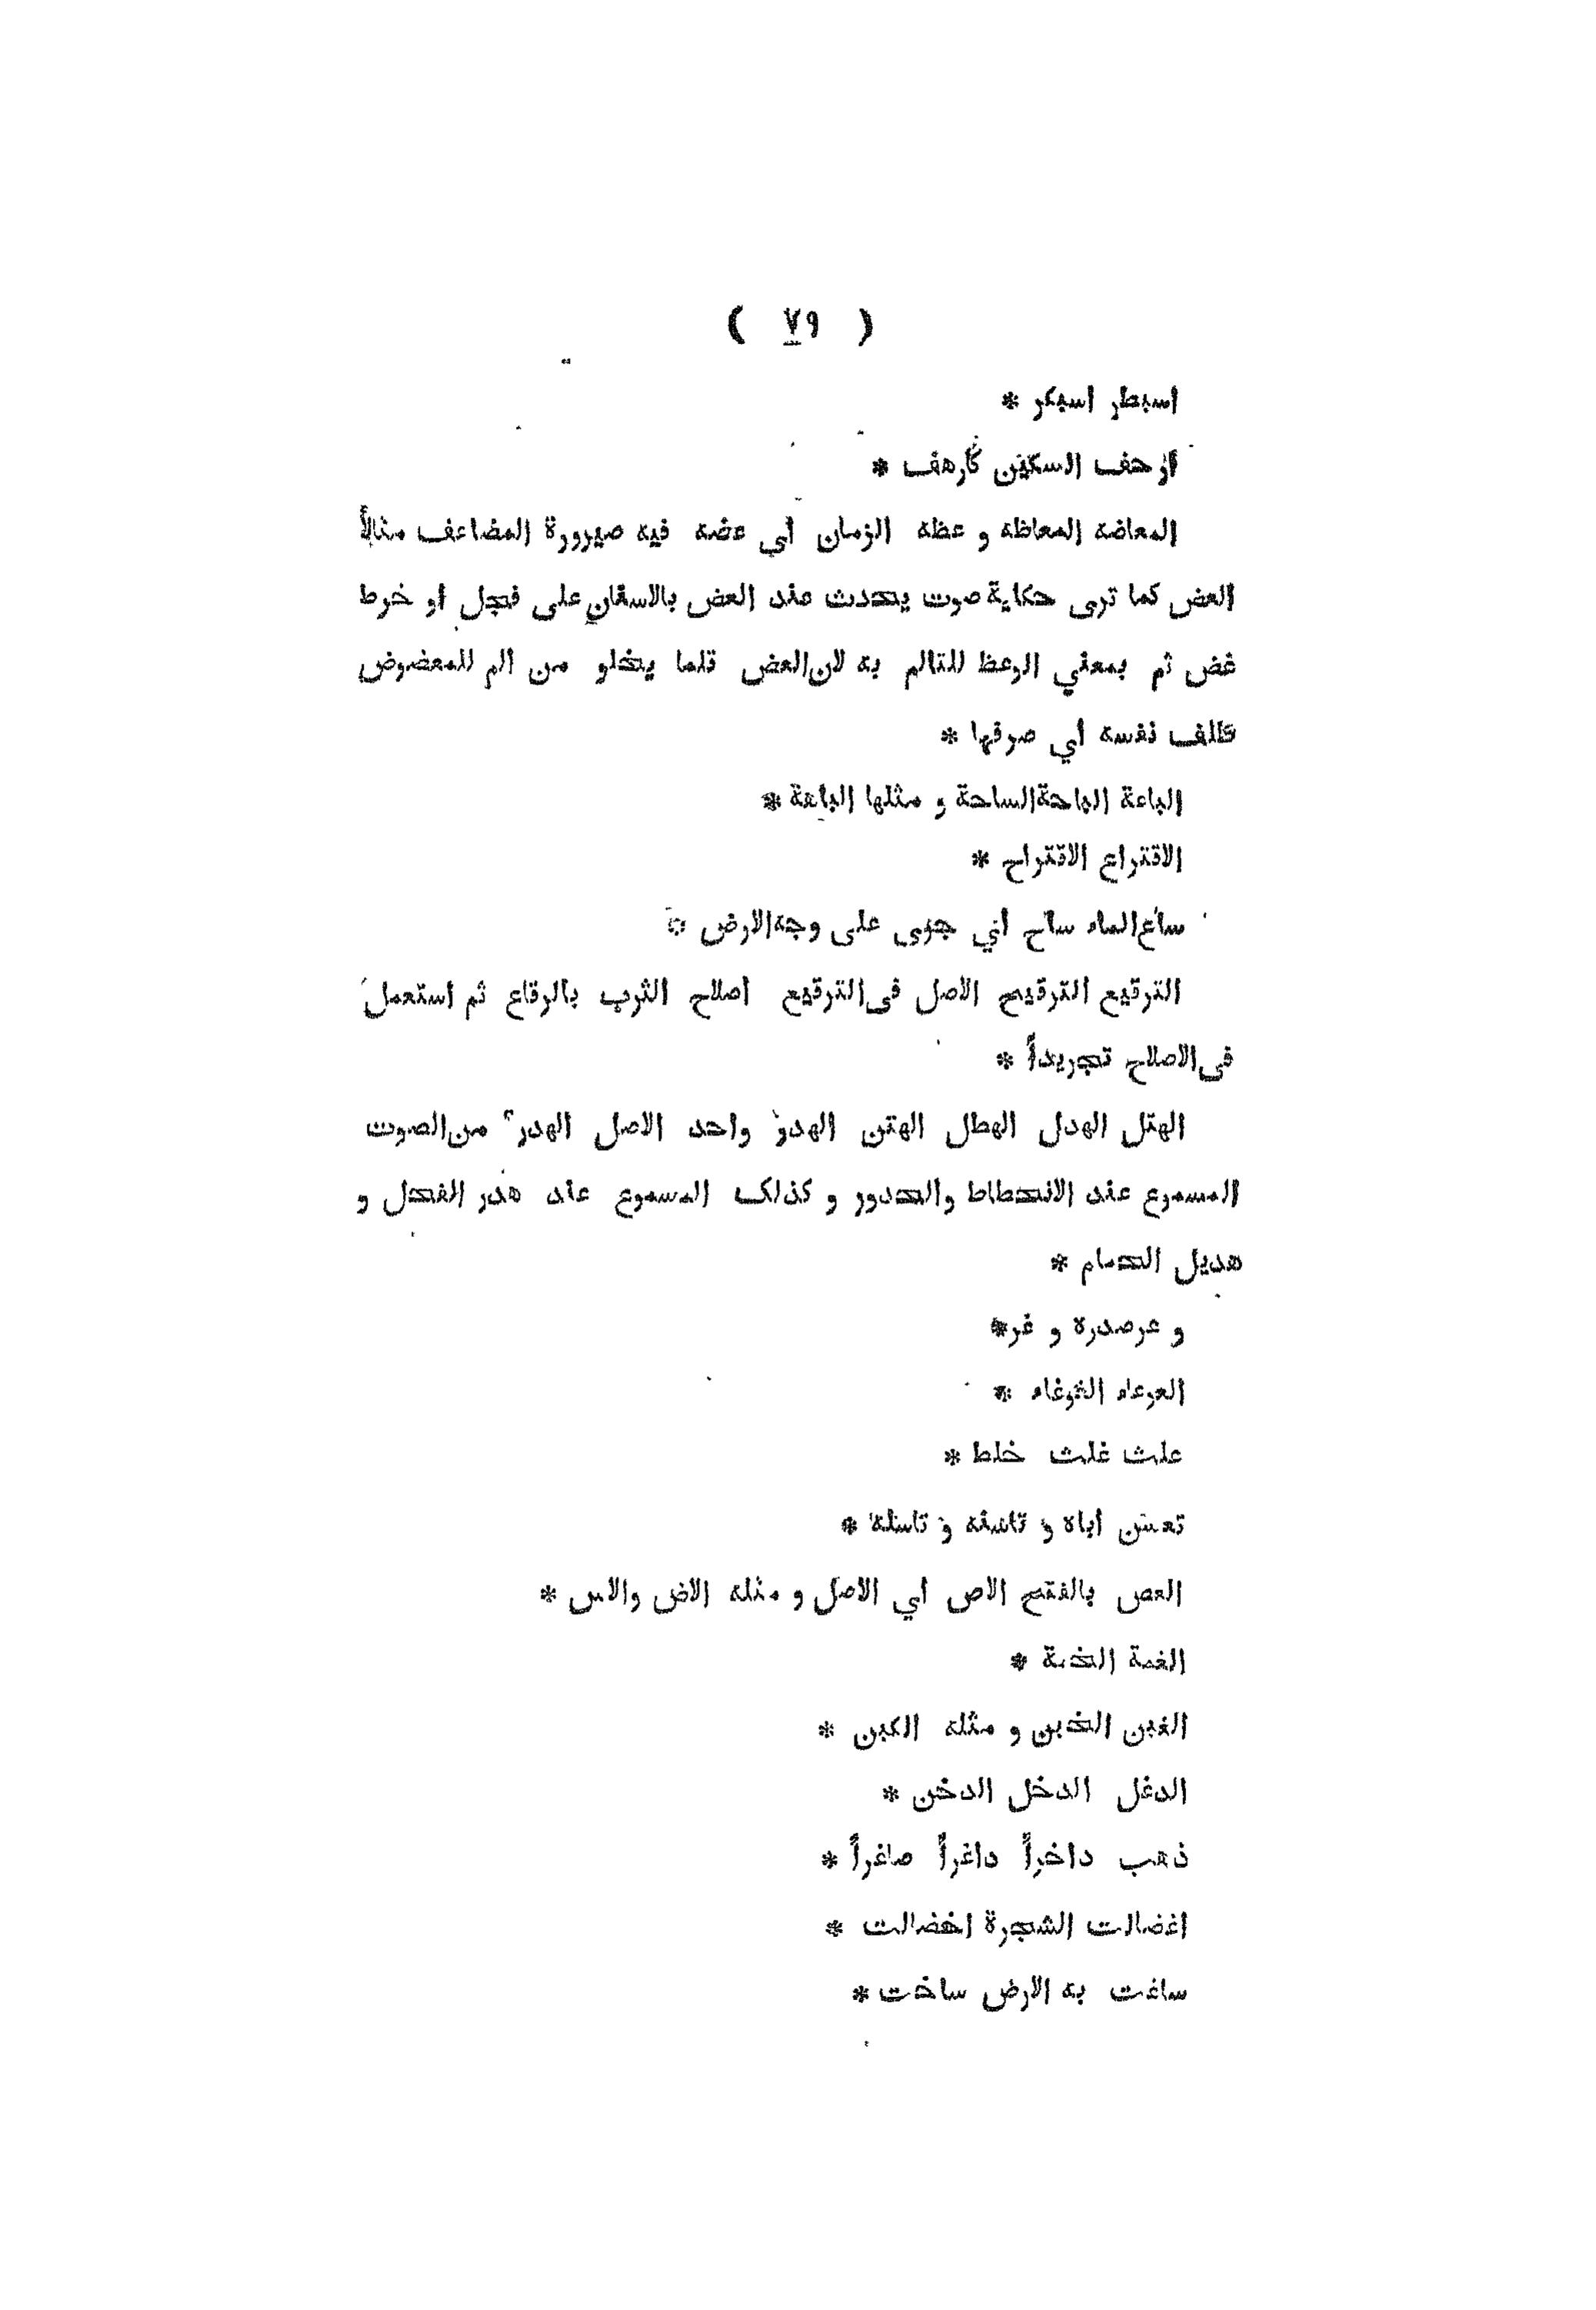 ( ٧٩ )
اسبطر اسبكر *
أزحف السكين كأرهف *
المعاضه المعاظه و عظه الزمان أي عضه فيه صيرورة المضاعف مثالاً
العض كما ترى حكاية صوت يحدث عند العض بالاسنان على فجل او خرط
غض ثم بمعني الوعظ للتالم به لان العض قلما يخلو من الم للمعضوض
ظلف نفسه أي صرفها *
الباعة الباحة الساحة و مثلها الباهة *
الاقتراع الاقتراح *
ساع الماء ساح أي جرى على وجه الارض *
الترقيع الترقيح الاصل فى الترقيع اصلاح الثوب بالرقاع ثم استعمل
فى الاصلاح تجريداً *
الهتل الهدل الهطل الهتن الهدر واحد الاصل الهدر من الصوت
المسموع عند الانحطاط والحدور و كذلك المسموع عند هدر الفحل و
هديل الحمام *
و عر صدره و غر *
العوعاء الغوغاء *
علث غلث خلط *
تعسن أباه و تاسنه و تاسله *
العص بالفتح الاص أي الاصل و مثله الاض والاس *
الغمة الخمة *
الغبن الخبن و مثله الكبن *
الدغل الدخل الدخن *
ذهب داخراً داغراً صاغراً *
اغضالت الشجرة اخضالت *
ساغت به الارض ساخت *